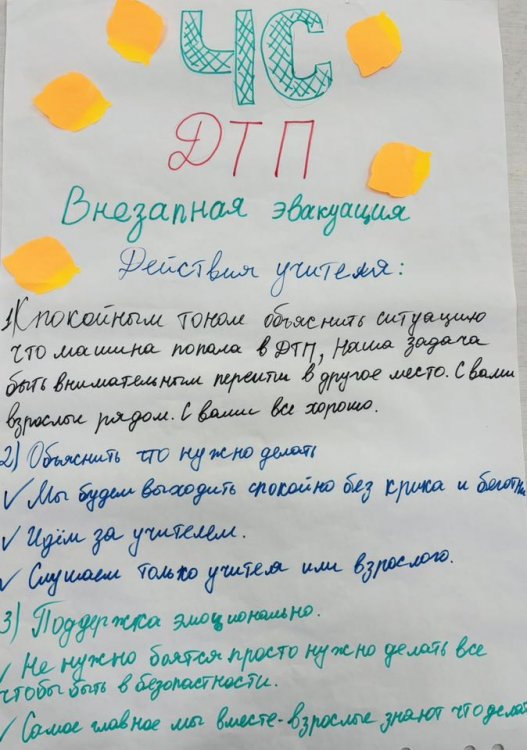 ЧС
ДТП
Внезапная эвакуация
Действия учителя:
1) Спокойным тоном объяснить ситуацию
что машина попала в ДТП, наша задача
быть внимательным перейти в другое место. С вами
взрослые рядом. С вами все хорошо.
2) Объяснить что нужно делать
✓ Мы будем выходить спокойно без крика и беготни
✓ Идём за учителем.
✓ Слушаем только учителя или взрослого.
3) Поддержка эмоционально.
✓ Не нужно боятся просто нужно делать все
чтобы быть в безопастности.
✓ Самое главное мы вместе-взрослые знают что делать